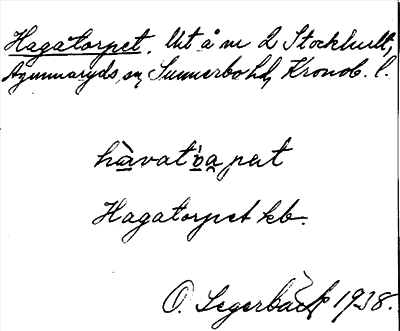 Hagatorpet. Utå m 2 Stockhult,
Agunnaryds sn, Sunnerbo hd, Kronob. l.
Hagatorpet kb.
O. Segerbäck 1938.